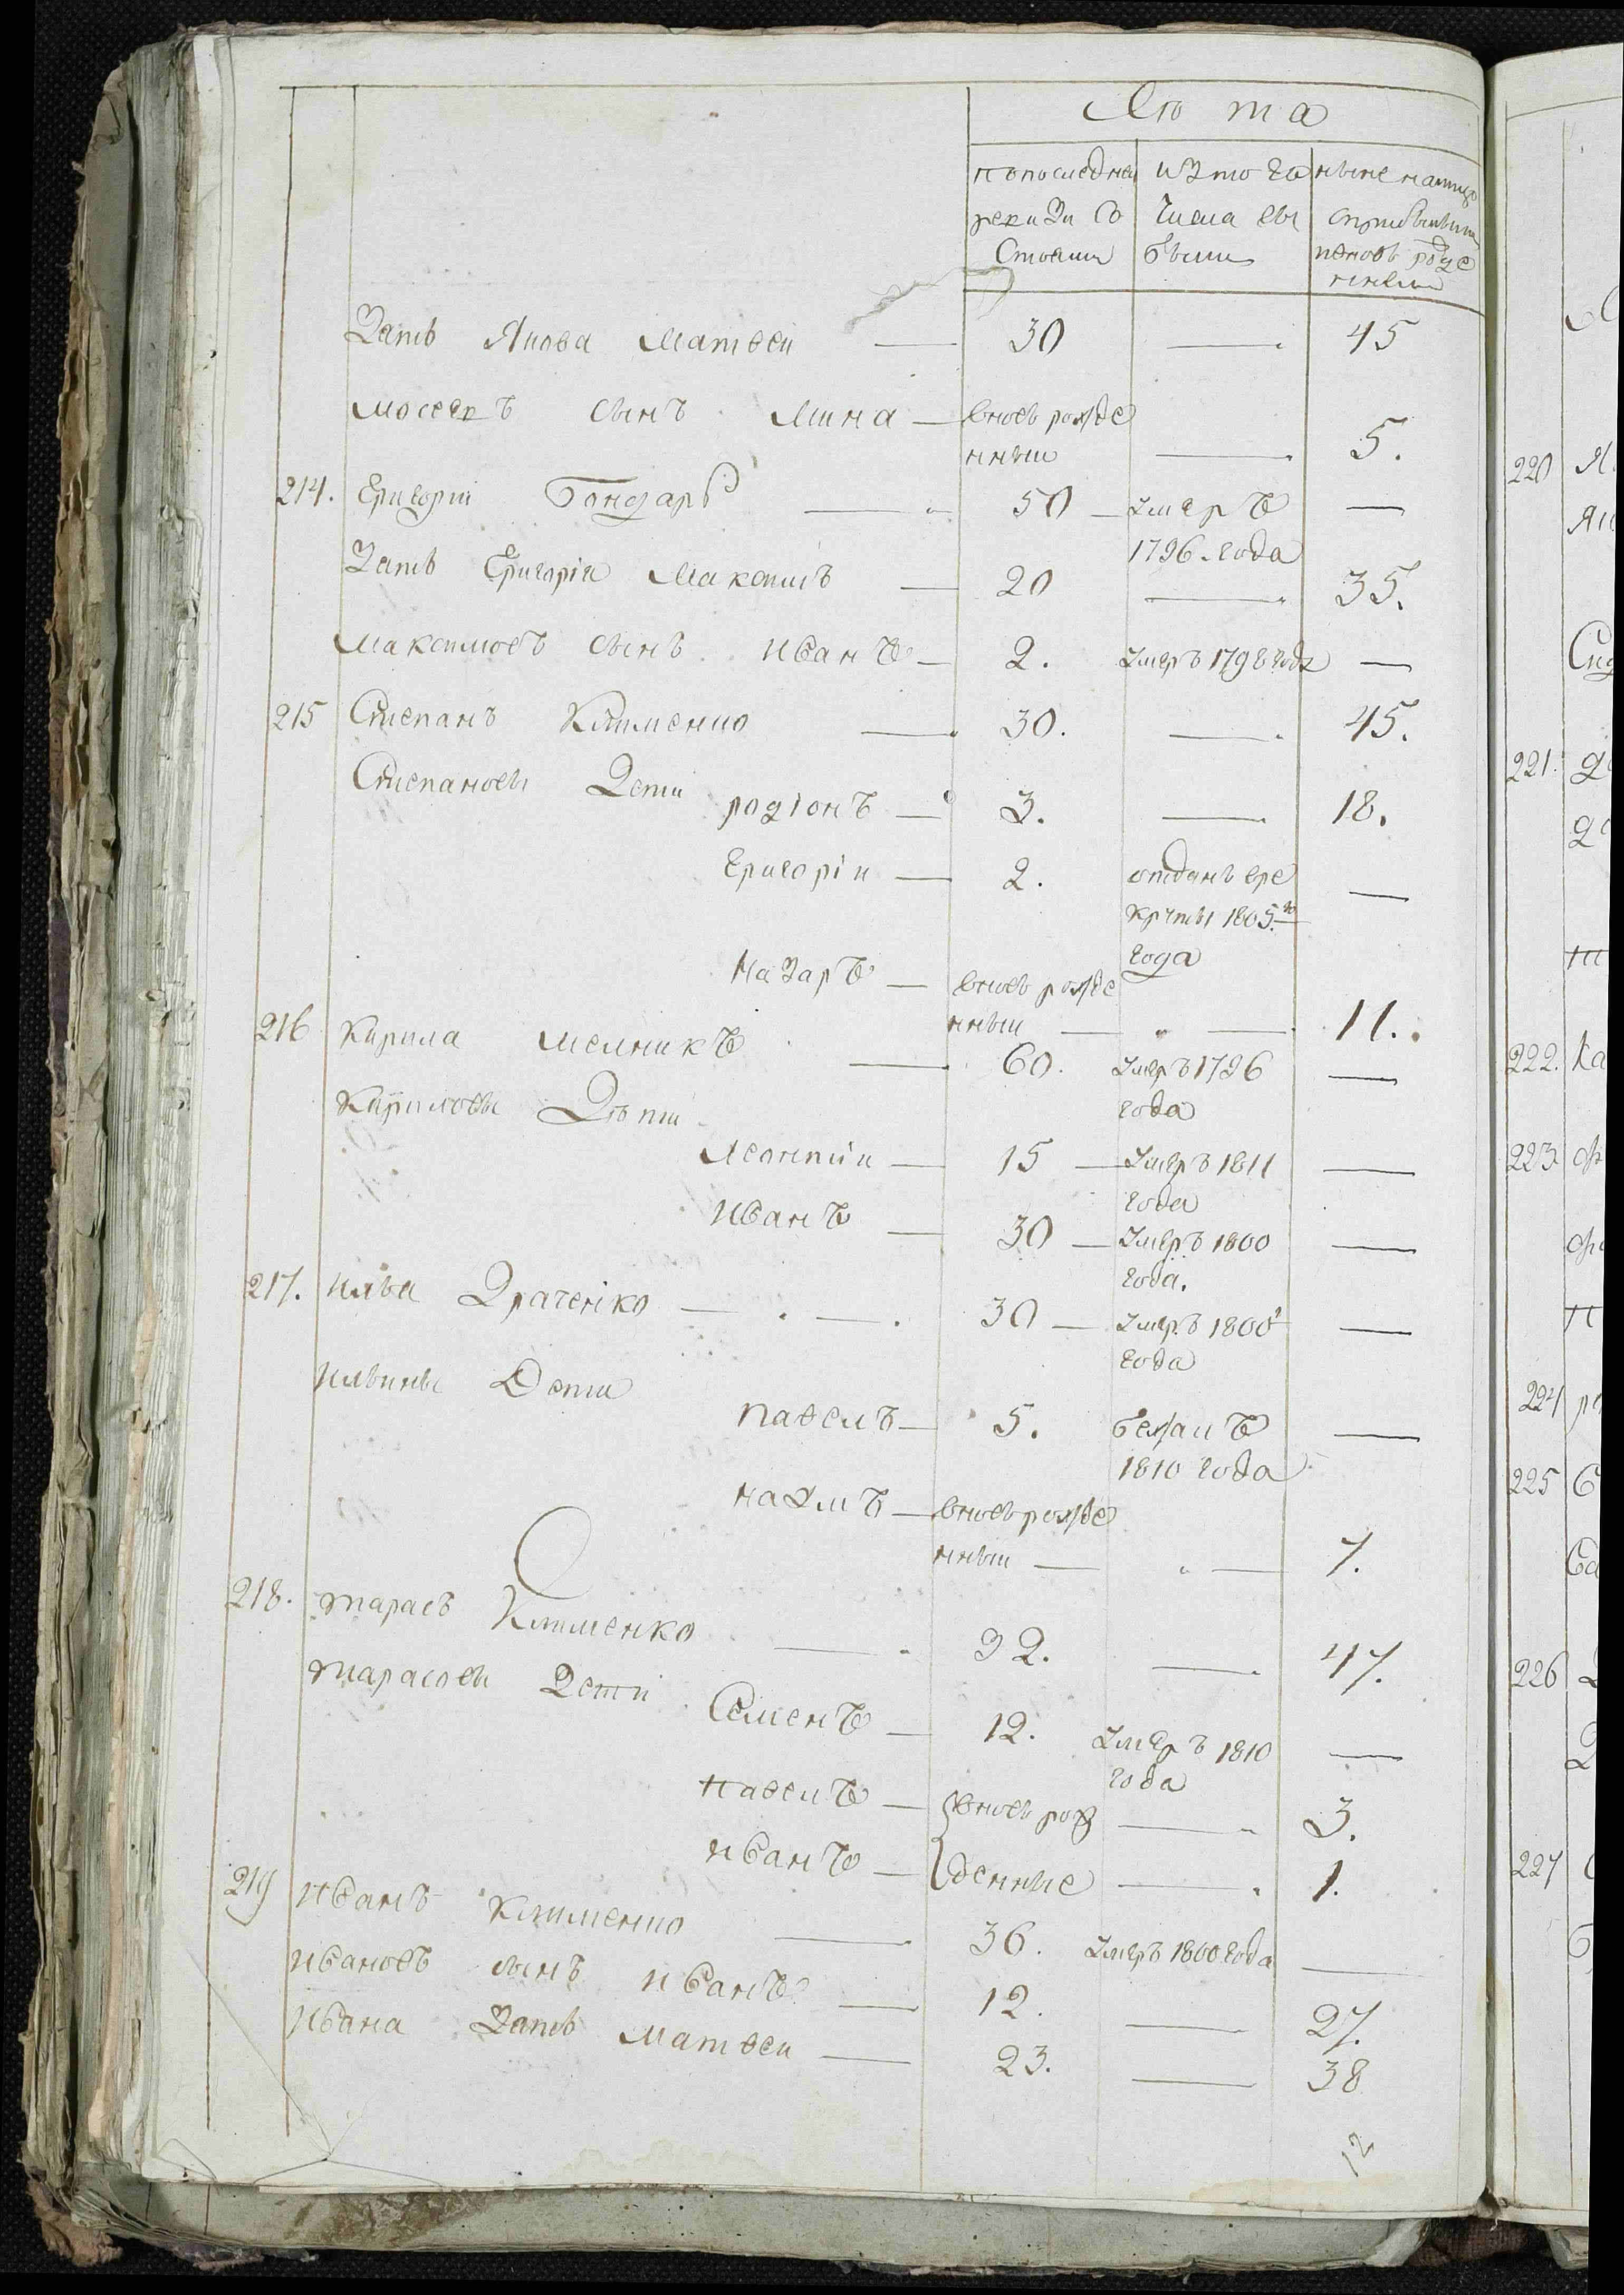 Лѣта
попоследней
ревизи со
стояли
изтого
числа вы
были
ныне налицо
вновь рожде
нными
Зять Якова Матвей — 30 — 45
сынъ Мина — вновь рожде
нный — 5.
214. Григорій Бондарь — 50 — умеръ —
1796. года
Зять Григорія Максимъ — 20 — 35.
Максимовъ сынъ Иванъ — 2. умеръ 1798 года —
215 Степанъ Клименко — 30. — 45.
Степановы Дети
родіонъ — 3. — 18.
Григоріи — 2. отданъ вре —
круты 1805го
года
Назаръ — вновь рожде
нный — 11.
216 Кирила мелникъ — 60. умеръ 1796 —
года
Кириловы Дѣти
Леонтіи — 15 — умеръ 1811 —
года
Иванъ — 30 — умеръ 1800 —
года.
217. Илья Драченко — 30 — умеръ 1800 —
года
Ильины Дети
Павелъ — 5. бежалъ —
1810 года
Наумъ — вновь рожде
нный — 7.
218. Тарасъ Клименко — 32. — 47.
Тарасовы Дети
Семенъ — 12. умеръ 1810 —
года
Павелъ — вновь рож — 3.
Иванъ — денные — 1.
219 Иванъ Клименко — 36. умеръ 1800 года —
Ивановъ сынъ Иванъ — 12. — 27.
Ивана Зять Матвеи — 23. — 38
12
220
221.
222. Ка
223
224
225
226
227